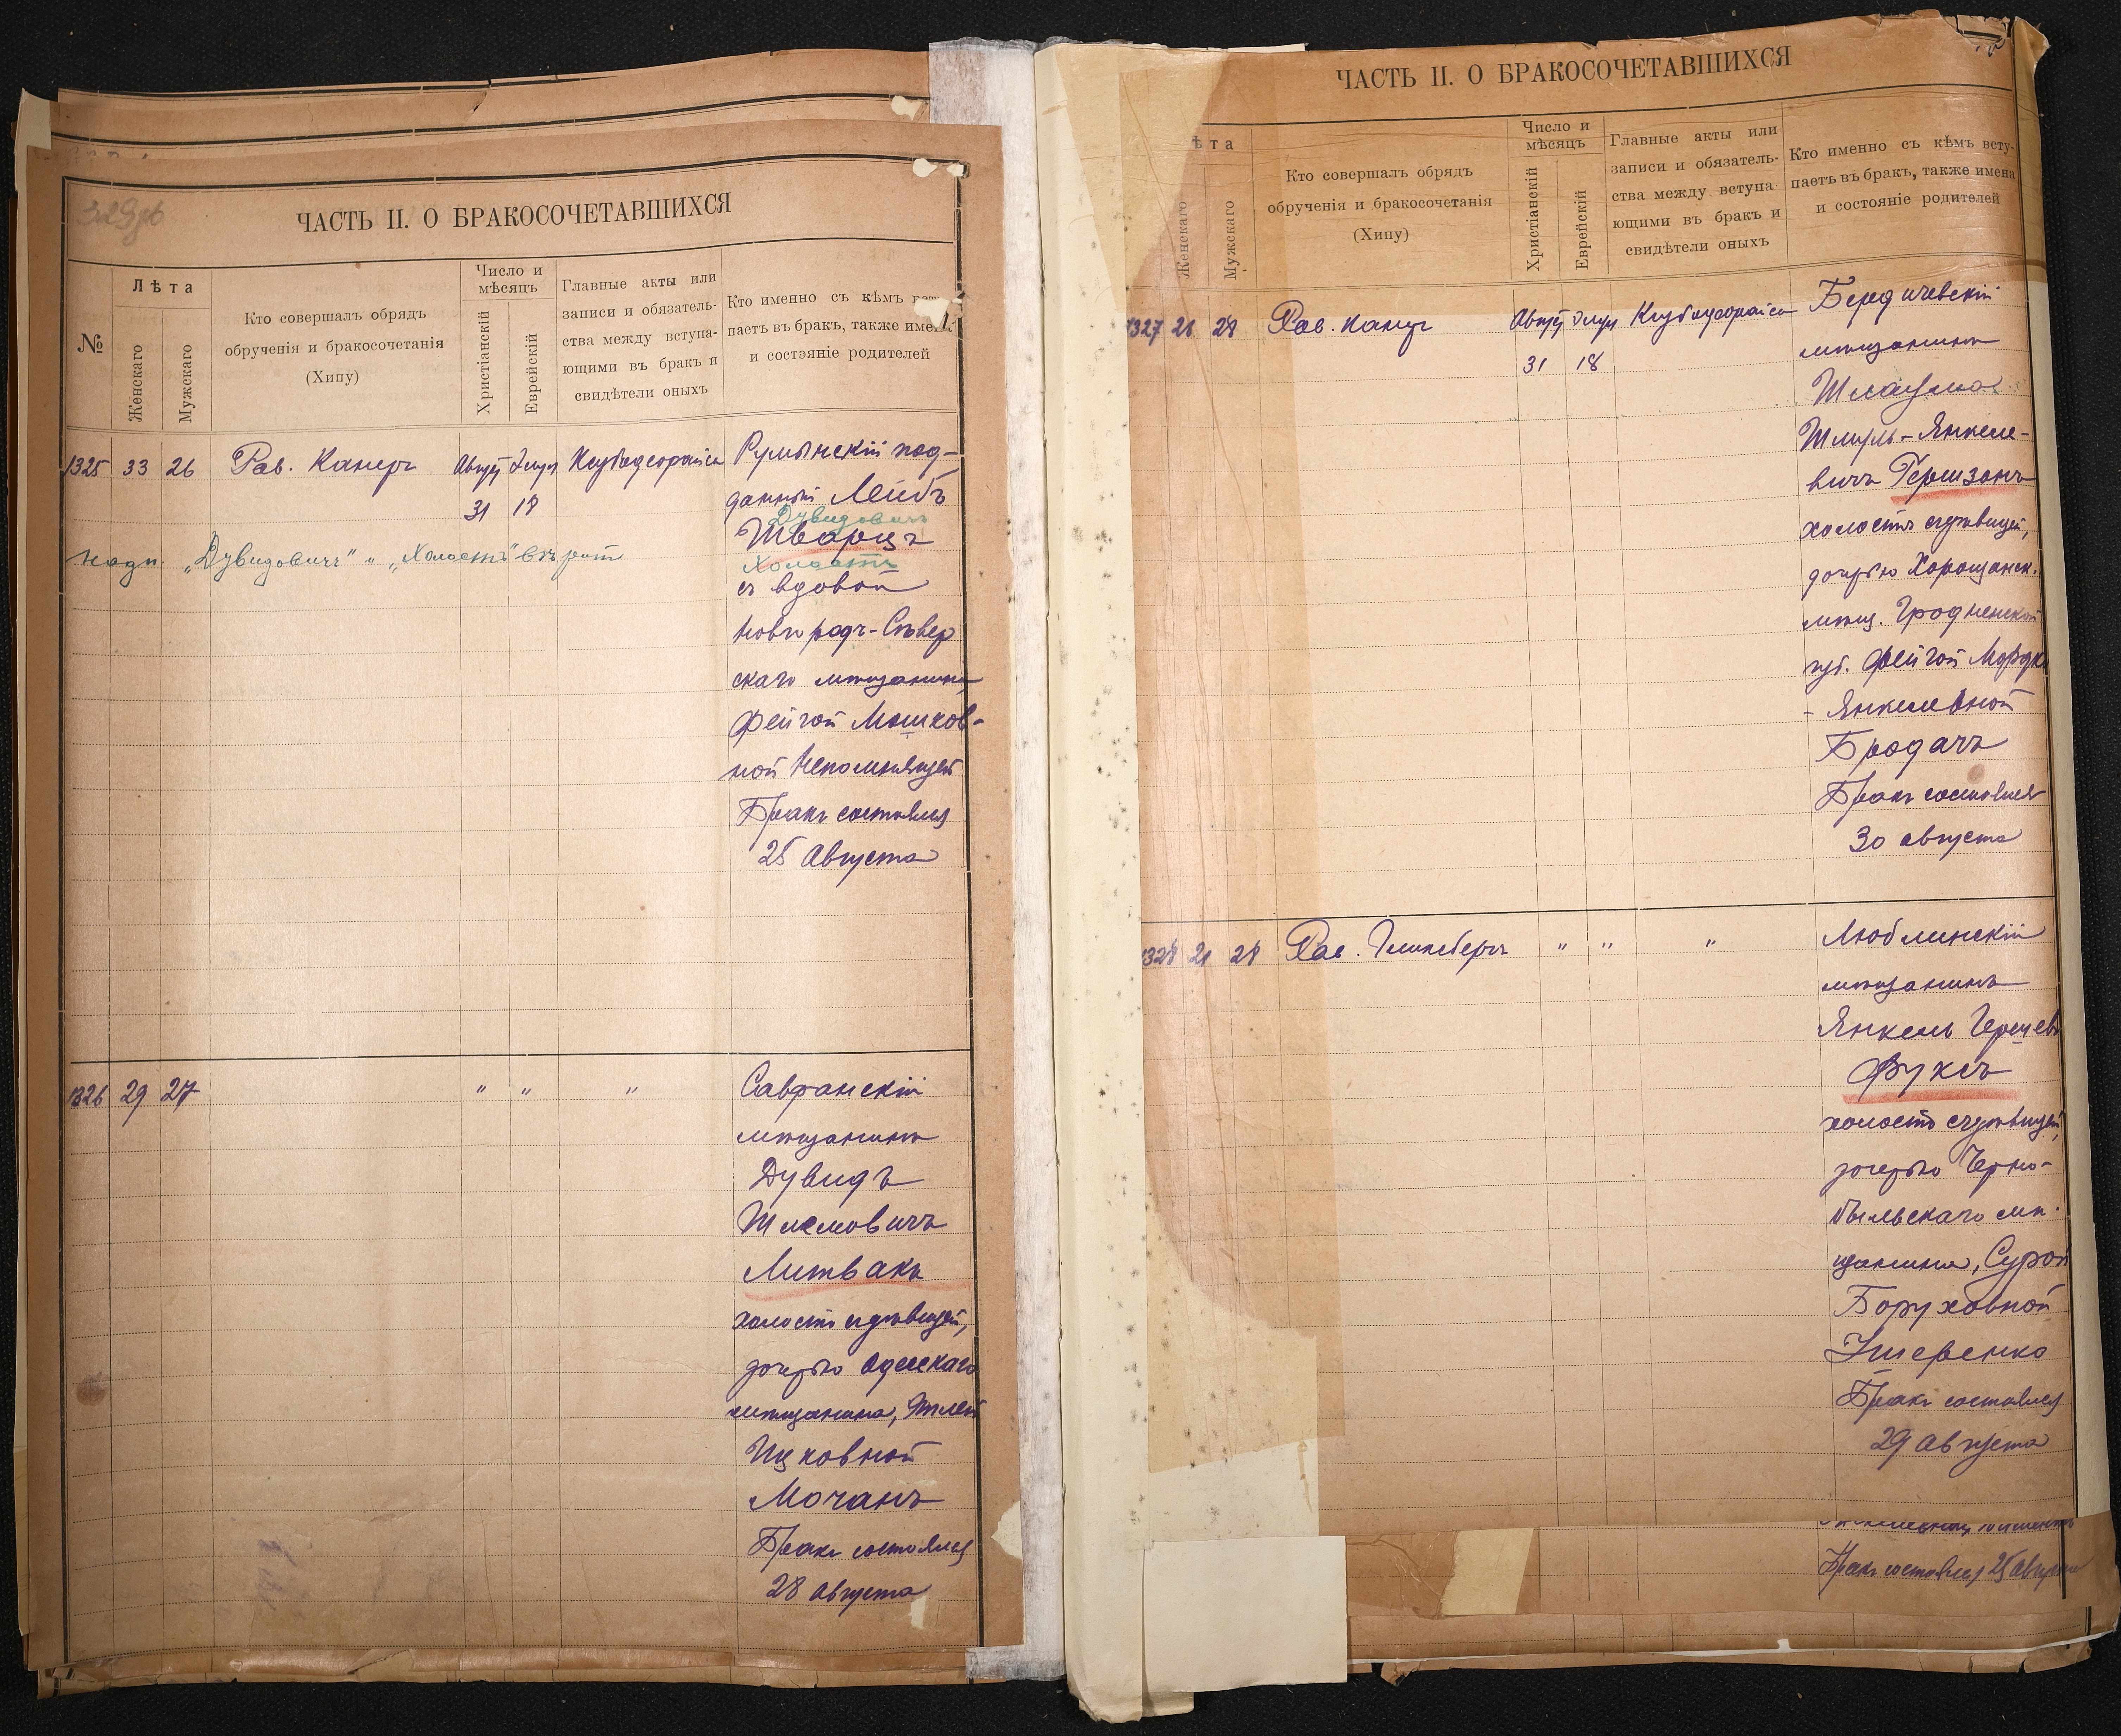 ЧАСТЬ II. О БРАКОСОЧЕТАВШИХСЯ
№
Лѣта
Женскаго
Мужскаго
Кто совершалъ обрядъ
обрученія и бракосочетанія
(Хипу)
Число и
мѣсяцъ
Христіанскій
Еврейскій
Главные акты или
записи и обязатель-
ства между вступа-
ющими въ бракъ и
свидѣтели оныхъ
Кто именно съ кѣмъ всту-
паетъ въ бракъ, также имена
и состэяніе родителей
1325 33 26 Рав. Канеръ
31 18
Румынскій под-
данный Лейбъ
Дувидовичъ
Шварцъ
Холостъ
съ вдовой
Новгородъ-Сѣвер
скаго мѣщанина,
Фейгой Мошков-
ной Непомнящей
Бракъ состоялся
25 Августа
надп. „Дувидовичъ" и „Холостъ"
1326 29 27 " " "
Савранскій
мѣщанинъ
Дувидъ
Шлемовичъ
Литвакъ
холостъ съ дѣвицей,
дочерью Одесскаго
мѣщанина, Этлей
Ицковной
Мочанъ
Бракъ состоялся
28 Августа
ЧАСТЬ II. О БРАКОСОЧЕТАВШИХСЯ
ѣта
Женскаго
Мужскаго
Кто совершалъ обрядъ
обрученія и бракосочетанія
(Хипу)
Число и
мѣсяцъ
Христіанскій
Еврейскій
Главные акты или
записи и обязатель-
ства между вступа-
ющими въ бракъ и
свидѣтели оныхъ
Кто именно съ кѣмъ всту-
паетъ въ бракъ, также имена
и состояніе родителей
1327 21 28 Рав. Канеръ
31 18
Бердичевскій
мѣщанинъ
Шмуль-Янкеле-
вичъ Гершзонъ
холостъ съ дѣвицей,
дочерью Хорощанск.
мѣщ. Гродненской
губ. Фейгой Мордко
- Янкелевной
Бродачъ
Бракъ состоялся
30 августа
1328 21 28 Рав. " " "
Люблинскій
мѣщанинъ
Янкель Герцев
Фуксъ
холостъ съ дѣвицей,
дочерью Черно-
быльскаго мѣ-
щанина, Сурой
Боруховной
Ушеренко
Бракъ состоялся
29 Августа
Бракъ состоялся 25 августа